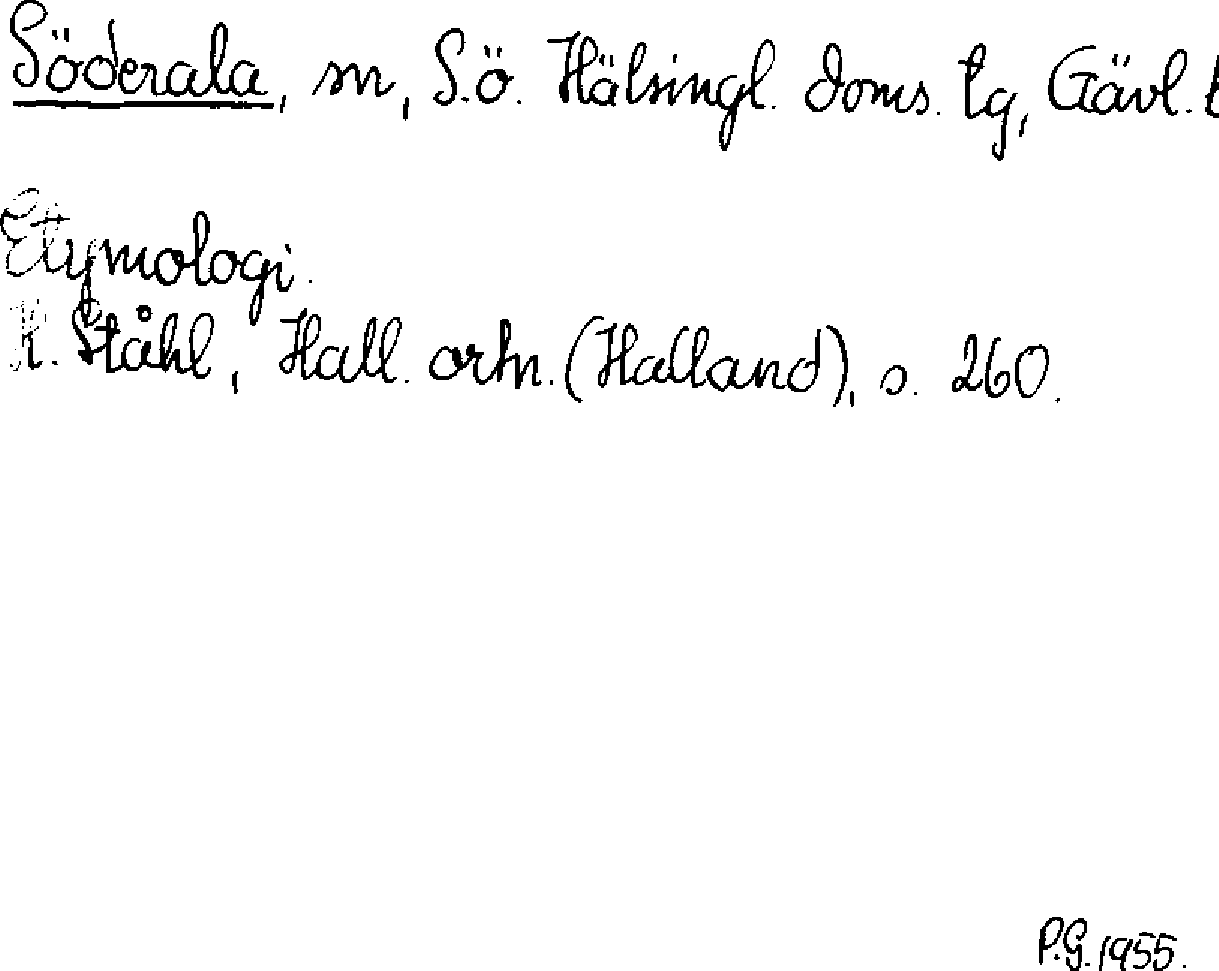 Söderala, sn, S.ö. Hälsingl. doms. tg, Gävl. l
Etymologi.
K. Ståhl, Hall. ortn. (Halland), s. 260.
P.G. 1955.